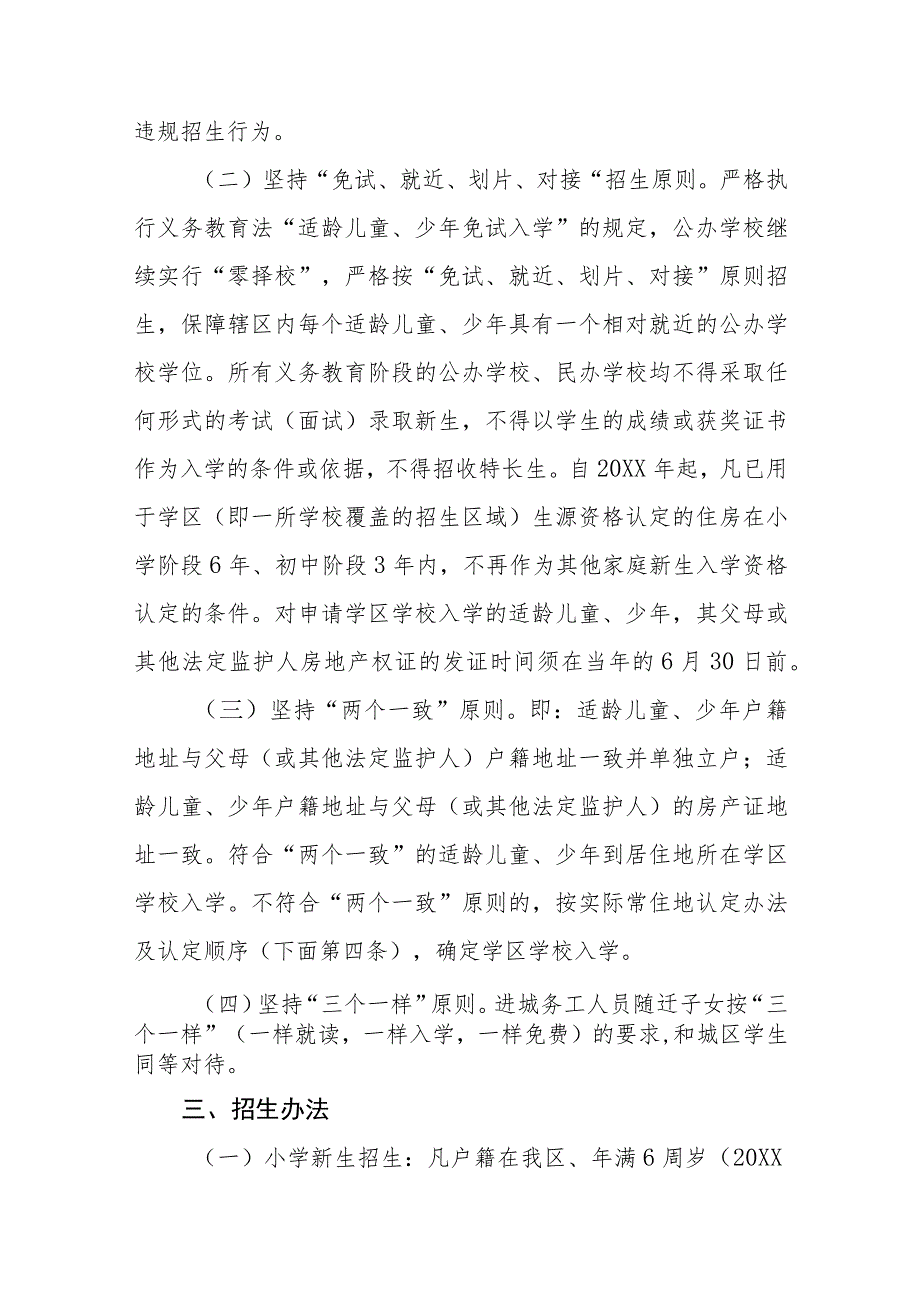 违规招生行为。
（二）坚持“免试、就近、划片、对接“招生原则。严格执
行义务教育法“适龄儿童、少年免试入学”的规定，公办学校继
续实行“零择校”，严格按“免试、就近、划片、对接”原则招
生，保障辖区内每个适龄儿童、少年具有一个相对就近的公办学
校学位。所有义务教育阶段的公办学校、民办学校均不得采取任
何形式的考试（面试）录取新生，不得以学生的成绩或获奖证书
作为入学的条件或依据，不得招收特长生。自 20XX 年起，凡已用
于学区（即一所学校覆盖的招生区域）生源资格认定的住房在小
学阶段 6 年、初中阶段 3 年内，不再作为其他家庭新生入学资格
认定的条件。对申请学区学校入学的适龄儿童、少年，其父母或
其他法定监护人房地产权证的发证时间须在当年的 6 月 30 日前。
（三）坚持“两个一致”原则。即：适龄儿童、少年户籍
地址与父母（或其他法定监护人）户籍地址一致并单独立户；适
龄儿童、少年户籍地址与父母（或其他法定监护人）的房产证地
址一致。符合“两个一致”的适龄儿童、少年到居住地所在学区
学校入学。不符合“两个一致”原则的，按实际常住地认定办法
及认定顺序（下面第四条），确定学区学校入学。
（四）坚持“三个一样”原则。进城务工人员随迁子女按“三
个一样”（一样就读，一样入学，一样免费）的要求,和城区学生
同等对待。
三、招生办法
（一）小学新生招生：凡户籍在我区、年满 6 周岁（20XX